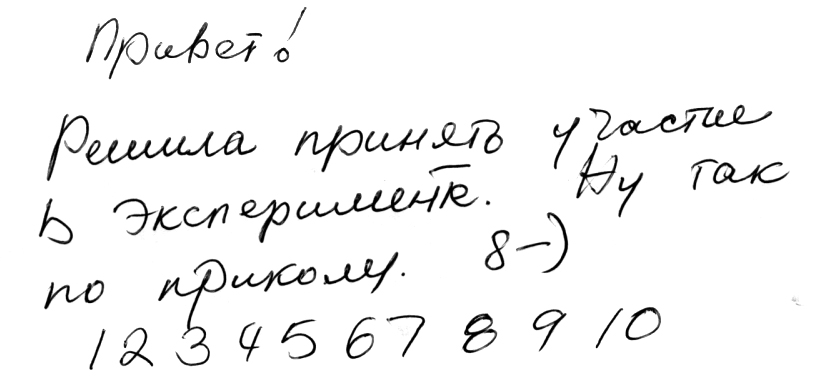 Привет!
Решила принять участие
в эксперименте. Ну так
по приколу. 8-)
1 2 3 4 5 6 7 8 9 10